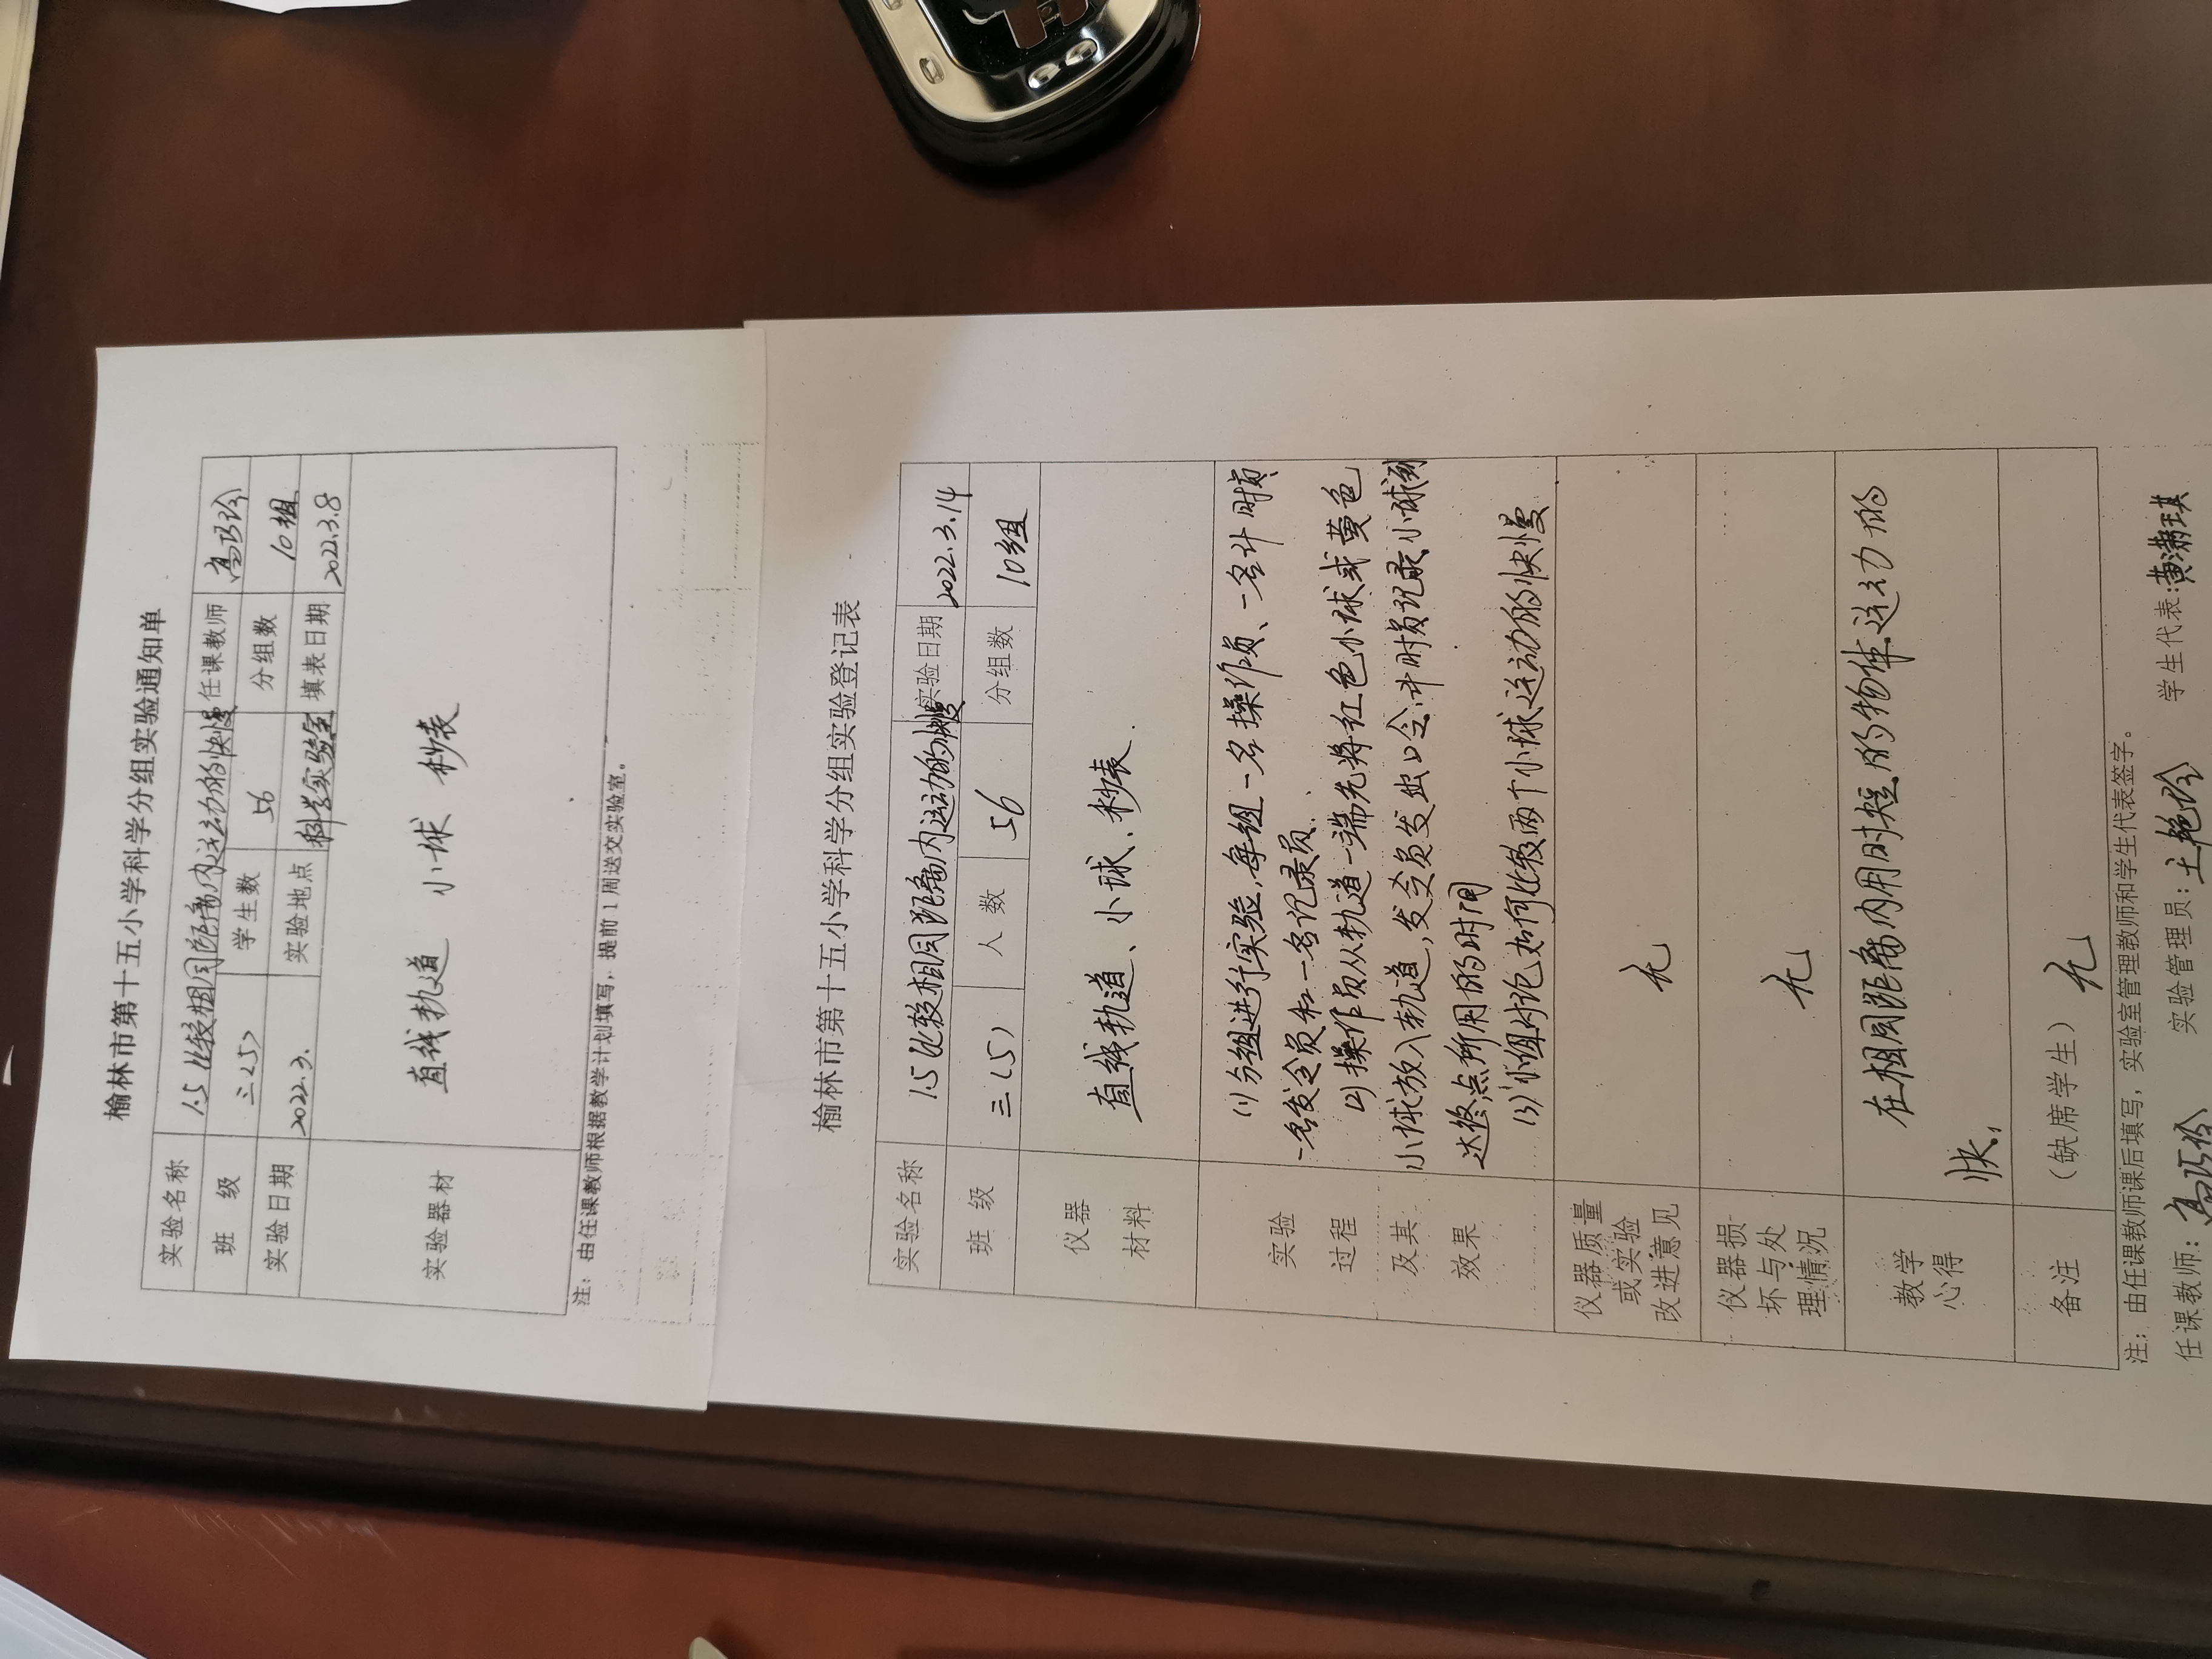 榆林市第十五小学科学分组实验通知单
实验名称 1.5 比较相同距离内运动的快慢 任课教师 高巧玲
班 级 三(5) 学生数 56 分组数 10组
实验日期 2022.3. 实验地点 科学实验室 填表日期 2022.3.8
实验器材 直线轨道 小球 秒表
注：由任课教师根据教学计划填写，提前1周送交实验室。
榆林市第十五小学科学分组实验登记表
实验名称 1.5 比较相同距离内运动的快慢 实验日期 2022.3.14
班 级 三(5) 人 数 56 分组数 10组
仪器
材料
直线轨道、小球、秒表.
实验
过程
及其
效果
(1) 分组进行实验,每组一名操作员、一名计时员
一名发令员和一名记录员.
(2) 操作员从轨道一端先将红色小球或黄色
小球放入轨道,发令员发出口令,计时员记录小球到
达终点所用的时间
(3) 小组讨论如何比较两个小球运动的快慢
仪器质量
或实验
改进意见
无
仪器损
坏与处
理情况
无
教学
心得
在相同距离内用时短的物体运动的
快,
备注 (缺席学生) 无
注：由任课教师课后填写，实验室管理教师和学生代表签字。
任课教师: 高巧玲 实验管理员: 王艳玲 学生代表: